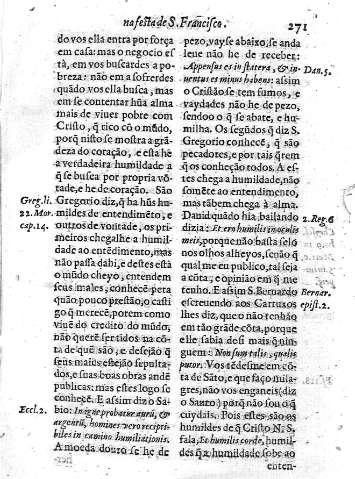 na festa de S. Francisco.
271
do vos ella entra por força
em casa: mas o negocio es
tà, em vos buscardes a po-
breza: não em a sofrerdes
quãdo vos ella busca, mas
em se contentar hũa alma
mais de viuer pobre com
Cristo, q̃ rico cõ o mũdo,
porq̃ nisto se mostra a grã-
deza do coração, e esta he
a verdadeira humildade a
q̃ se busca por propria võ-
tade, e he de coração. São
Gregorio diz, q̃ ha hũs hu-
mildes de entendimẽto, e
outros de võtade, os pri-
meiros chegalhe a humil-
dade ao entendimento mas
não passa dahi, e destes està
o mũdo cheyo, entendem
seus males, conhecẽ pera
quão pouco prestão, o casti
go q̃ merecẽ, porem como
viuẽ do credito do mũdo,
não querẽ ser tidos na cõ-
ta de quẽ são, e desejão q̃
seus maus estejão sepulta-
dos, e suas boas obras andẽ
publicas: mas estes logo se
conhecẽ. E assim diz o Sa-
bio: In igne probatur aurũ, &
argentũ, homines vero recepti-
biles in camino humiliationis.
A moeda douro se he de
Greg. li.
22. Mor.
cap. 14.
Eccl. 2.
pezo, vay se abaixo, se anda
lene não he de receber:
Appensus es in statera, & in-
uentus es minus habens: assim
o Cristão se tem fumos, e
vaydades não he de pezo,
sendo o q̃ se abate, e hu-
milha. Os segũdos q̃ diz S.
Gregorio conhecẽ, q̃ são
pecadores, e por tais q̃rem
q̃ os conheção todos. A es-
tes chega a humildade, não
somẽte ao entendimento,
mas tãbem chega à alma.
Dauid quãdo hia bailando
dizia: Et ero humilis in oculis
meis, porque não basta selo
nos olhos alheyos, senão q̃
qual me eu publico, tal seja
a cõta, e opinião em q̃ me
tenho. E assim S. Bernardo
escreuendo aos Cartuxos
lhes diz, que o não tenhão
em tão grãde cõta, porque
elle sabia de si mais q̃ nin-
guem: Non sum talis, qualis
putor. Vos tẽdes me em cõ-
ta de Sãto, e que faço mila-
gres, não vos enganeis (diz
o Santo) porq̃ não sou q̃
cuydais. Pois estes são os
humildes de q̃ Cristo N. S.
fala, Et humilis corde, humil-
dès q̃ a humildade sobe ao
enten-
Dan. 5.
2. Reg. 6
Bernar.
epist. 2.